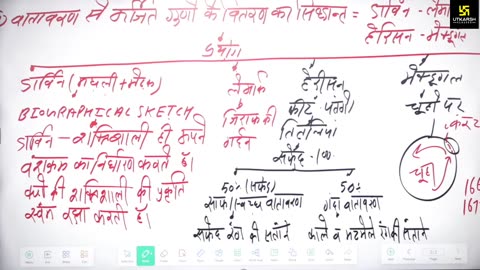 वातावरण से अर्जित गुणों के वितरण का सिद्धान्त = डार्विन - लैमार्क
हैरिसन - मैक्डूगल
UTKARSH
प्रयोग
डार्विन (मछली + मेंढक)
BIOGRAPHICAL SKETCH
डार्विन - शक्तिशाली ही अपने
वंशक्रम का निर्धारण करते हैं।
क्योंकी शक्तिशाली की प्रकृति
स्वंय रक्षा करती हैं।
लैमार्क
जिराफ की
गर्दन
हैरीसन
कीट पतंगों
तितलियां
सफेद - 100
50% (सफेद)
साफ/स्वच्छ वातावरण
सफेद रंग की संतानें
50%
गंदा वातावरण
काले व मटमैले रंग की संतानें
मैक्डूगल
चूहों पर
करंट
चूहा